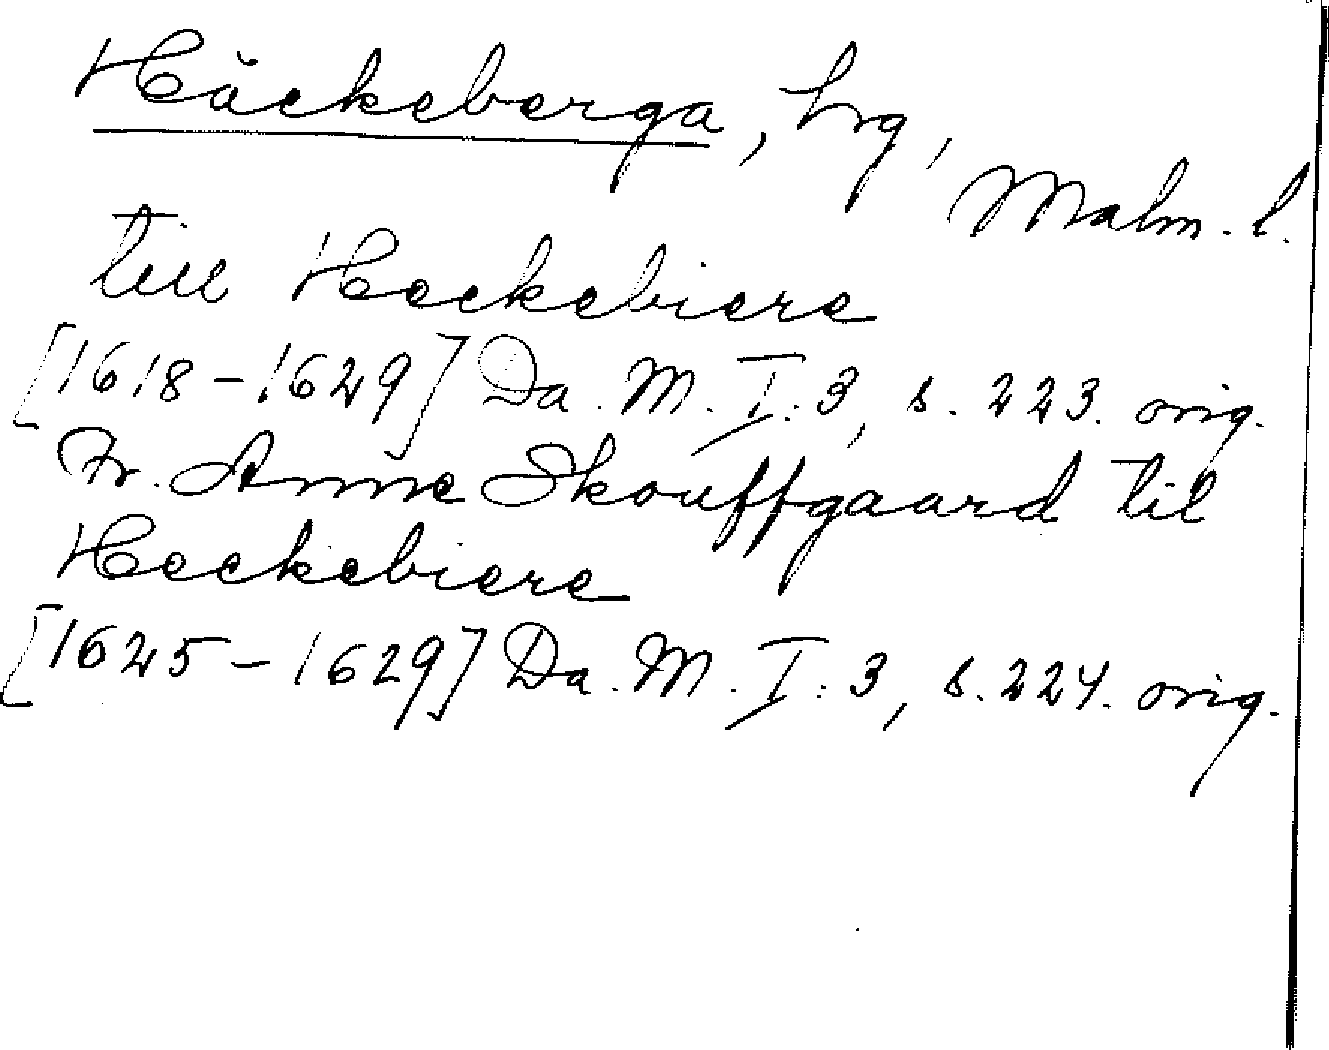 Häckeberga, hrg,
Malm. l.
till Heckebiere
[1618-1629] Da. M. I: 3, s. 223. orig.
Fr. Anne Skouffgaard til
Heckebiere
[1625-1629] Da. M. I: 3, s. 224. orig.